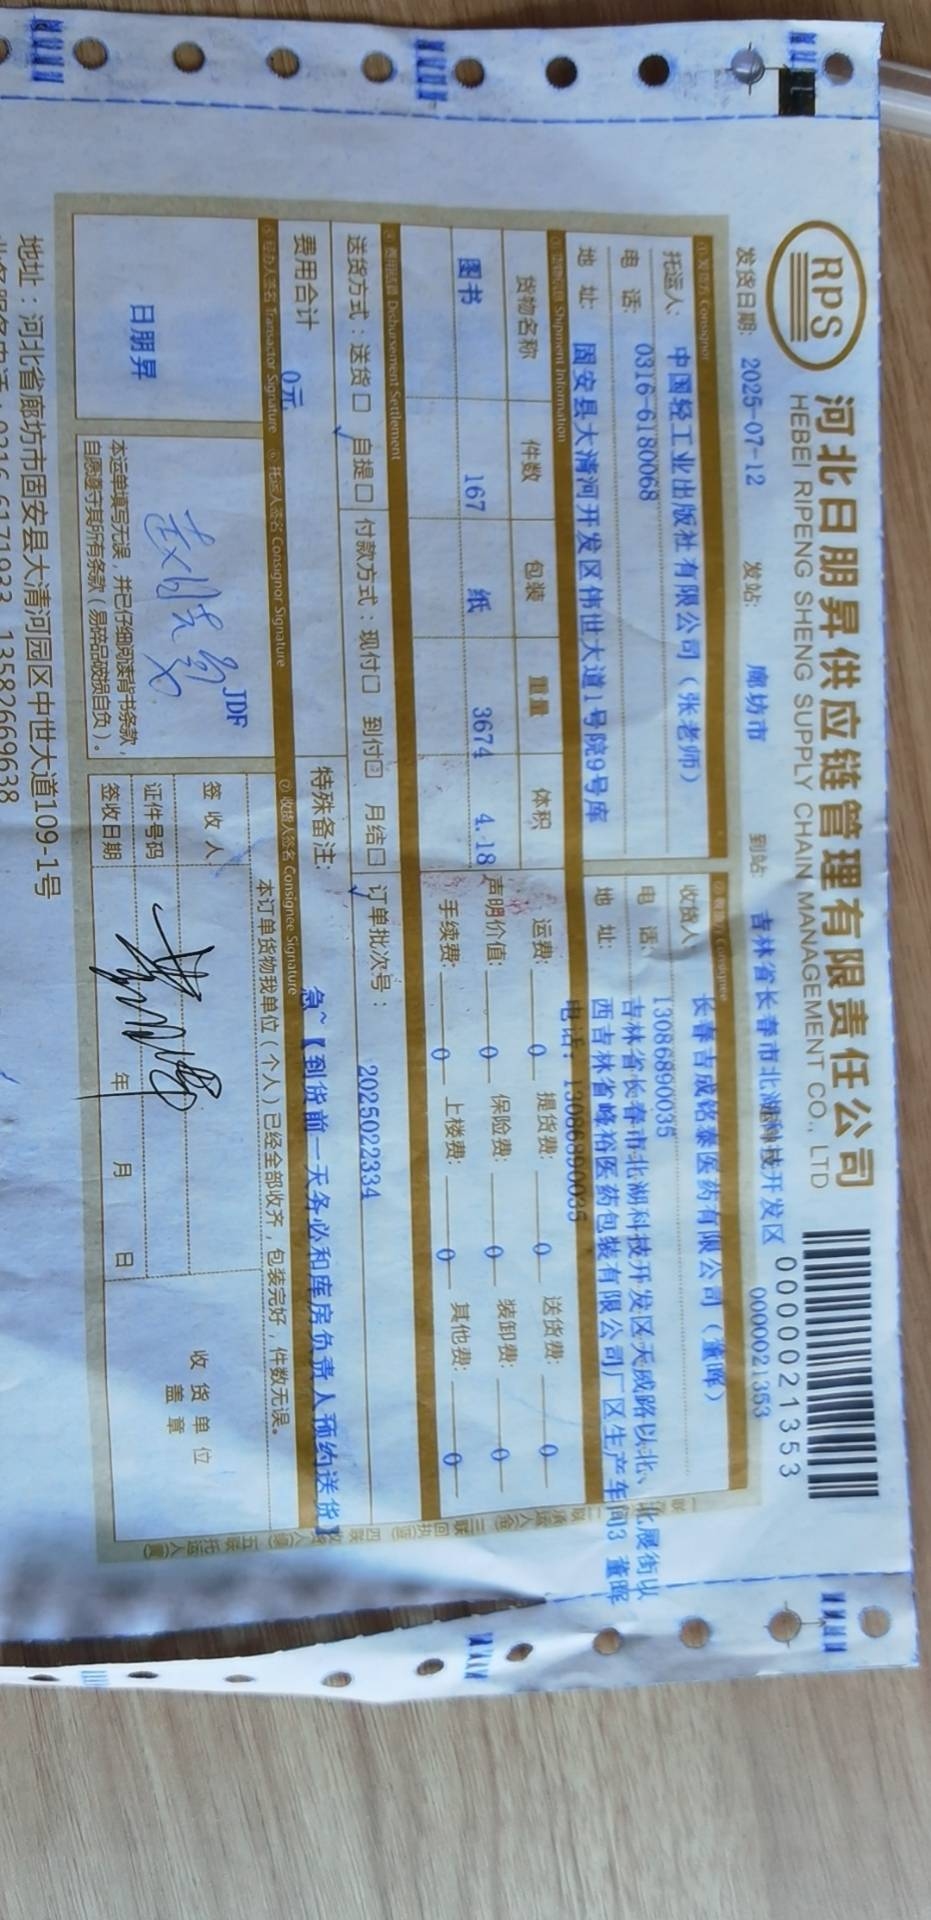 RPS
河北日朋昇供应链管理有限责任公司
HEBEI RIPENG SHENG SUPPLY CHAIN MANAGEMENT CO., LTD
0000021353
发货日期: 2025-07-12 发站: 廊坊市 到站: 吉林省长春市北湖科技开发区 0000021353
① 发货方 Consignor
托运人: 中国轻工业出版社有限公司（张老师）
电 话: 0316-6180068
地 址: 固安县大清河开发区伟世大道1号院9号库
② 收货方 Consignee
收货人: 长春吉成铭泰医药有限公司（董晖）
电 话: 13086890035
地 址: 吉林省长春市北湖科技开发区天威路以北、北展街以
西吉林省峰裕医药包装有限公司厂区生产车间3 董晖
电话: 13086890035
③ 货物信息 Shipment Information
货物名称 件数 包装 重量 体积
图书 167 纸 3674 4.18
运费: 0 提货费: 0 送货费: 0
声明价值: 0 保险费: 0 装卸费: 0
手续费: 0 上楼费: 0 其他费: 0
④ 费用结算 Disbursement Settlement
送货方式：送货□ 自提□ 付款方式：现付□ 到付□ 月结□ 订单批次号： 202502334
费用合计 0元
特殊备注: 急~【到货前一天务必和库房负责人预约送货】
⑤ 经办人签名 Transactor Signature ⑥ 托运人签名 Consignor Signature ⑦ 收货人签名 Consignee Signature
日朋昇
JDF
本运单填写无误，并已仔细阅读背书条款，
自愿遵守其所有条款（易碎品破损自负）。
本订单货物我单位（个人）已经全部收齐，包装完好，件数无误。
签 收 人
证件号码
签收日期 年 月 日
收货单位
盖章
地址：河北省廊坊市固安县大清河园区中世大道109-1号
业务服务电话：0316-6171933 13582669638